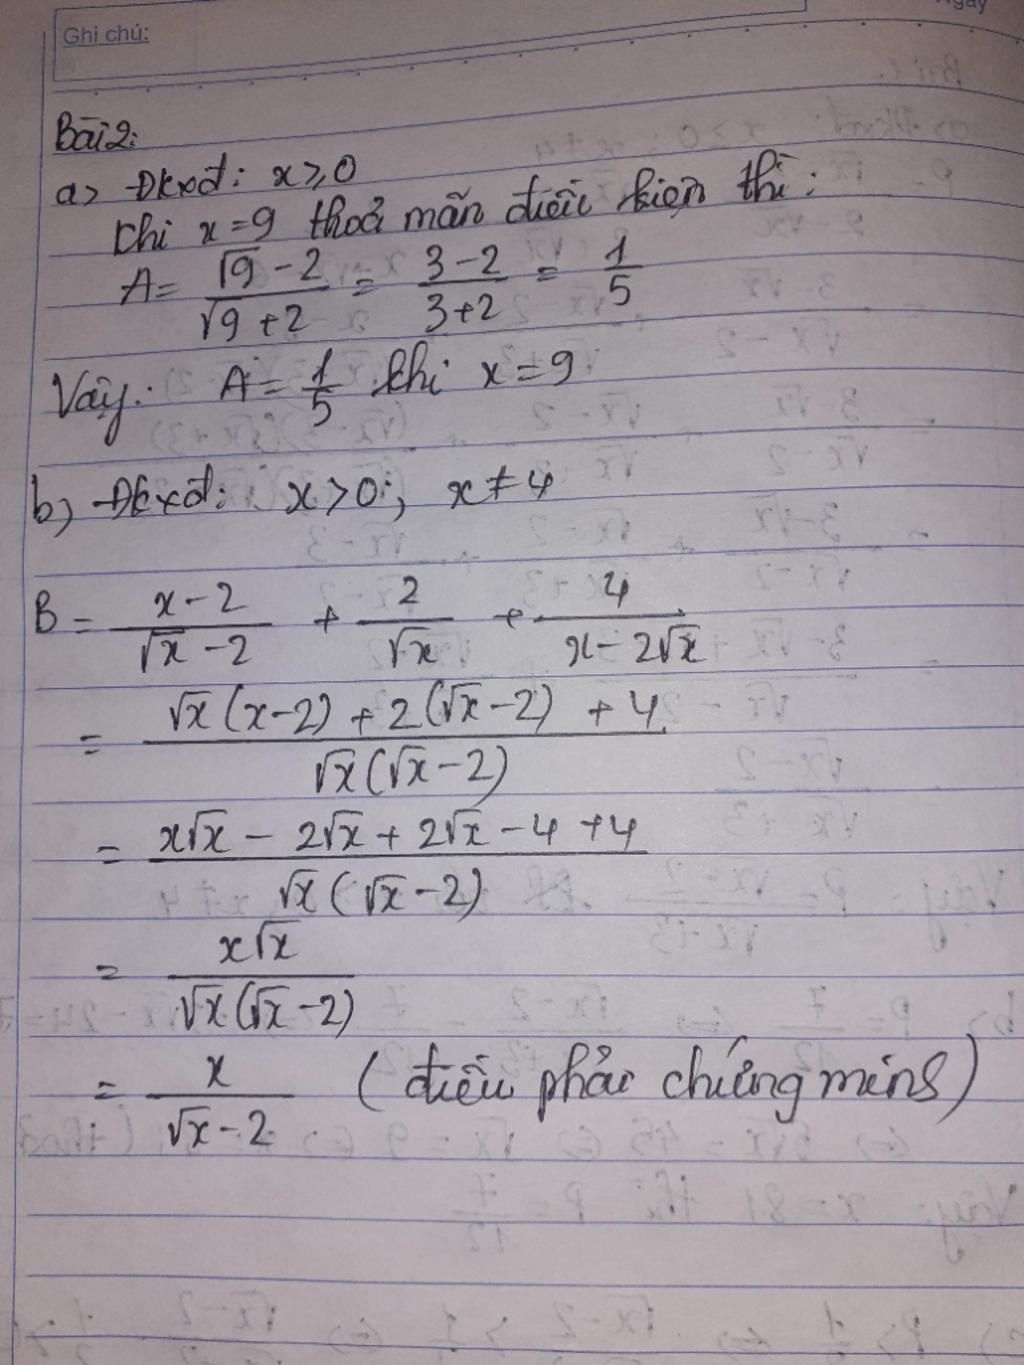 Ngày
Ghi chú:
Bài 2:
a> Đkxđ: x ⩾ 0
Khi x = 9 thoả mãn điều kiện thì:
A = (√9 - 2)/(√9 + 2) = (3 - 2)/(3 + 2) = 1/5
Vậy: A = 1/5 khi x = 9
b) Đkxđ: x > 0; x ≠ 4
B = (x - 2)/(√x - 2) + 2/√x + 4/(x - 2√x)
= (√x(x - 2) + 2(√x - 2) + 4)/(√x(√x - 2))
= (x√x - 2√x + 2√x - 4 + 4)/(√x(√x - 2))
= x√x/(√x(√x - 2))
= x/(√x - 2) (điều phải chứng minh)